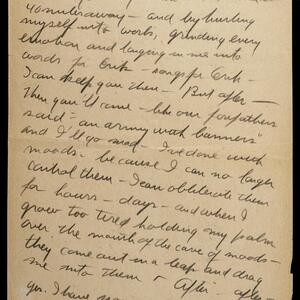 40 miles away — and by hurling
myself into work, grinding every
emotion and longing in me into
words for Erik — songs for Erik —
I can keep you then — But after —
then you'll come — like our forefathers
said — "an army with banners"
and I'll go mad — I've done with
moods — because I can no longer
control them — I can obliterate them
for hours — days — and when I
grow too tired holding my palm
over the mouth of the cave of moods —
they come out in a leap and drag
me into them — After — after —
yes. I have